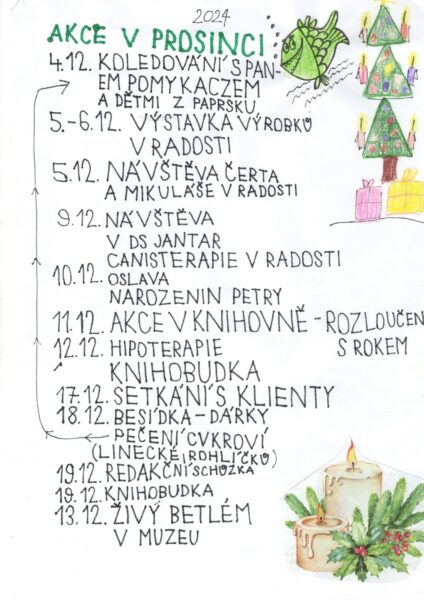 2024
AKCE V PROSINCI
4.12. KOLEDOVÁNÍ S PAN-
EM POMYKACZEM
A DĚTMI Z PAPRSKU
5.-6.12. VÝSTAVKA VÝROBKŮ
V RADOSTI
5.12. NÁVŠTĚVA ČERTA
A MIKULÁŠE V RADOSTI
9.12. NÁVŠTĚVA
V DS JANTAR
CANISTERAPIE V RADOSTI
10.12. OSLAVA
NAROZENIN PETRY
11.12. AKCE V KNIHOVNĚ - ROZLOUČEN
S ROKEM
12.12. HIPOTERAPIE
KNIHOBUDKA
17.12. SETKÁNÍ S KLIENTY
18.12. BESÍDKA - DÁRKY
PEČENÍ CUKROVÍ
(LINECKÉ, ROHLÍČKŮ)
19.12. REDAKČNÍ SCHŮZKA
19.12. KNIHOBUDKA
13.12. ŽIVÝ BETLÉM
V MUZEU